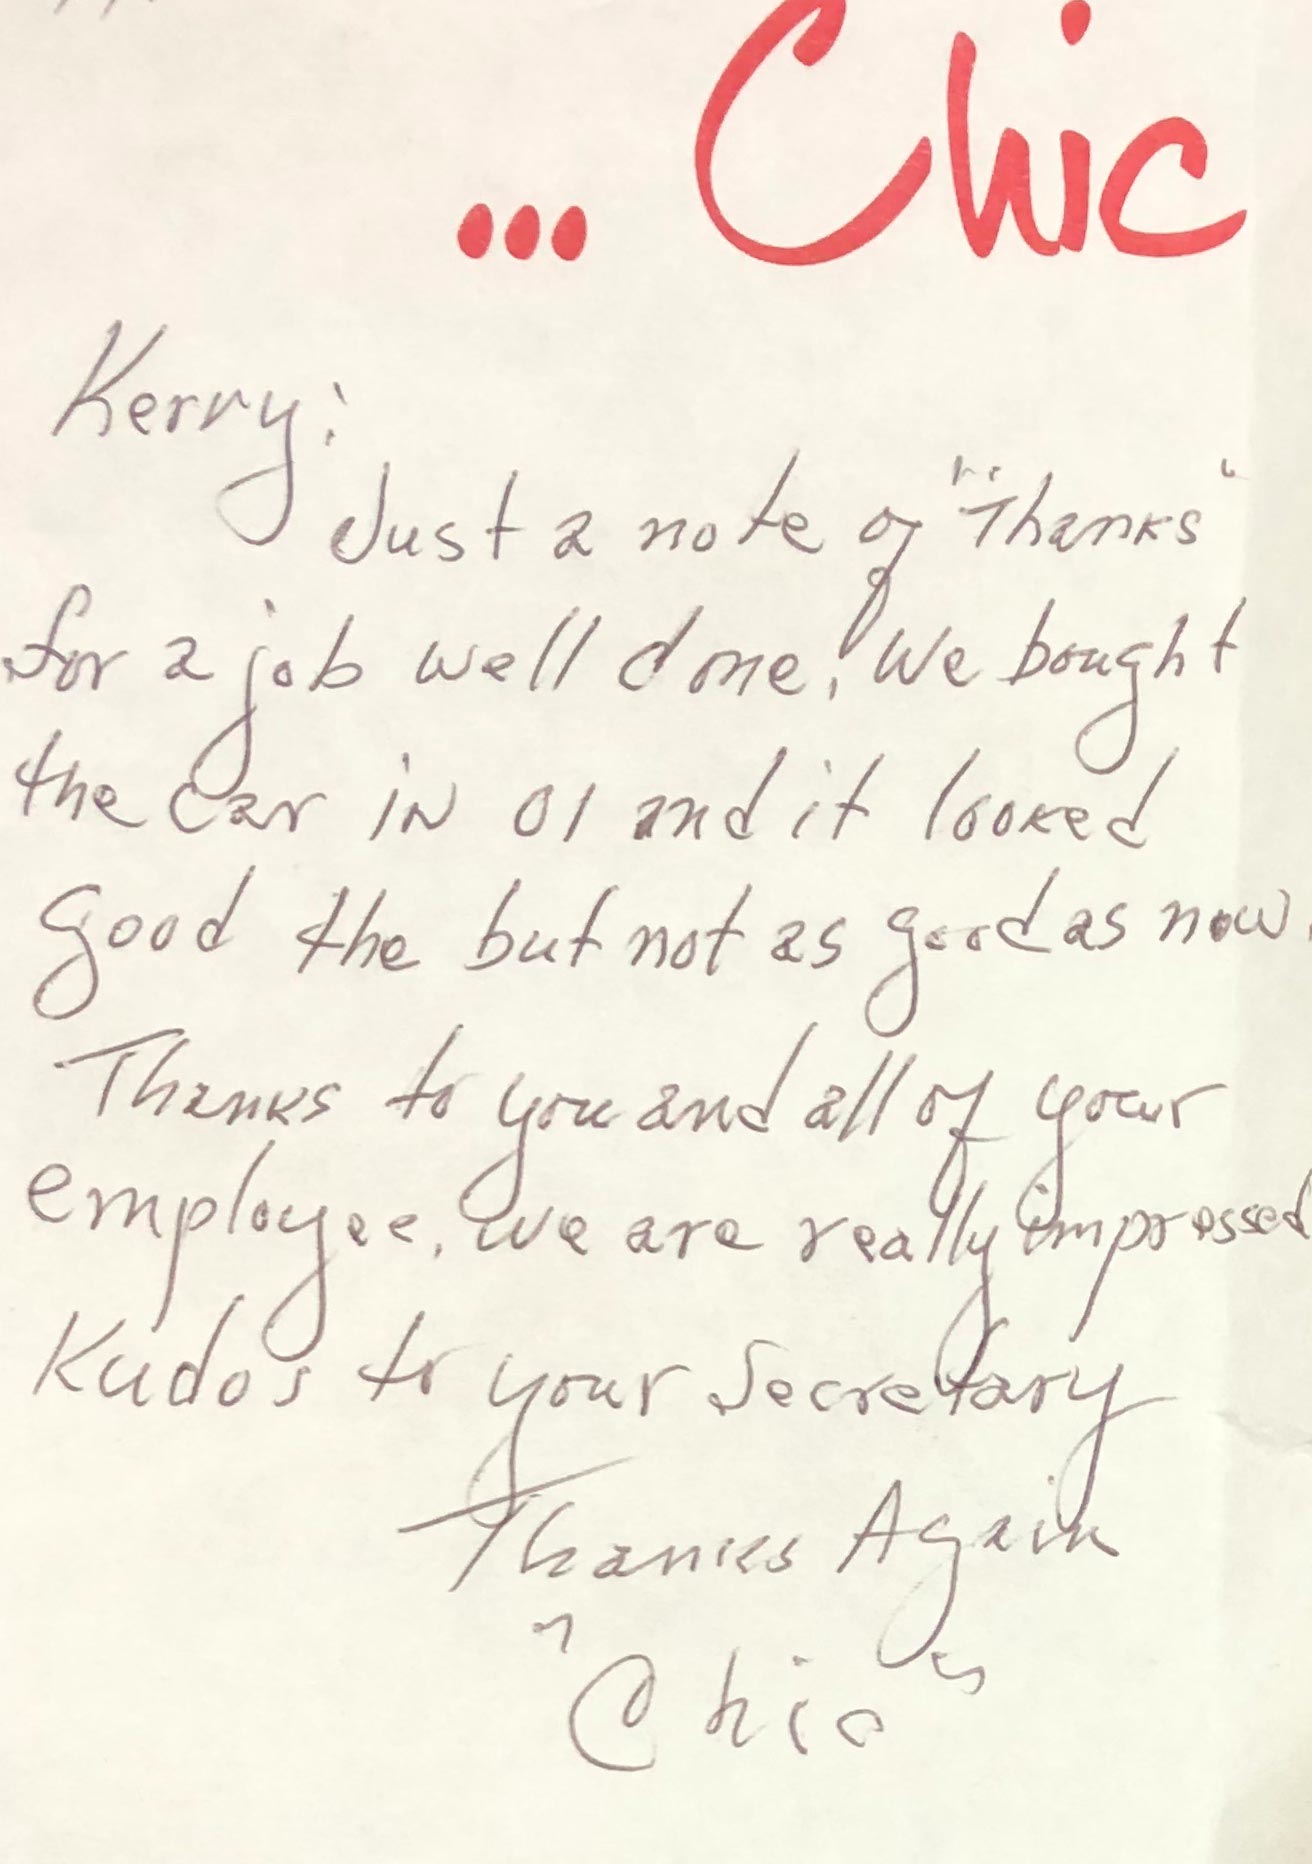 ... Chic
Kerry:
Just a note of "Thanks"
for a job well done. We bought
the car in 01 and it looked
good the but not as good as now.
Thanks to you and all of your
employee. We are really impressed
Kudos to your Secretary
Thanks Again
"Chic"